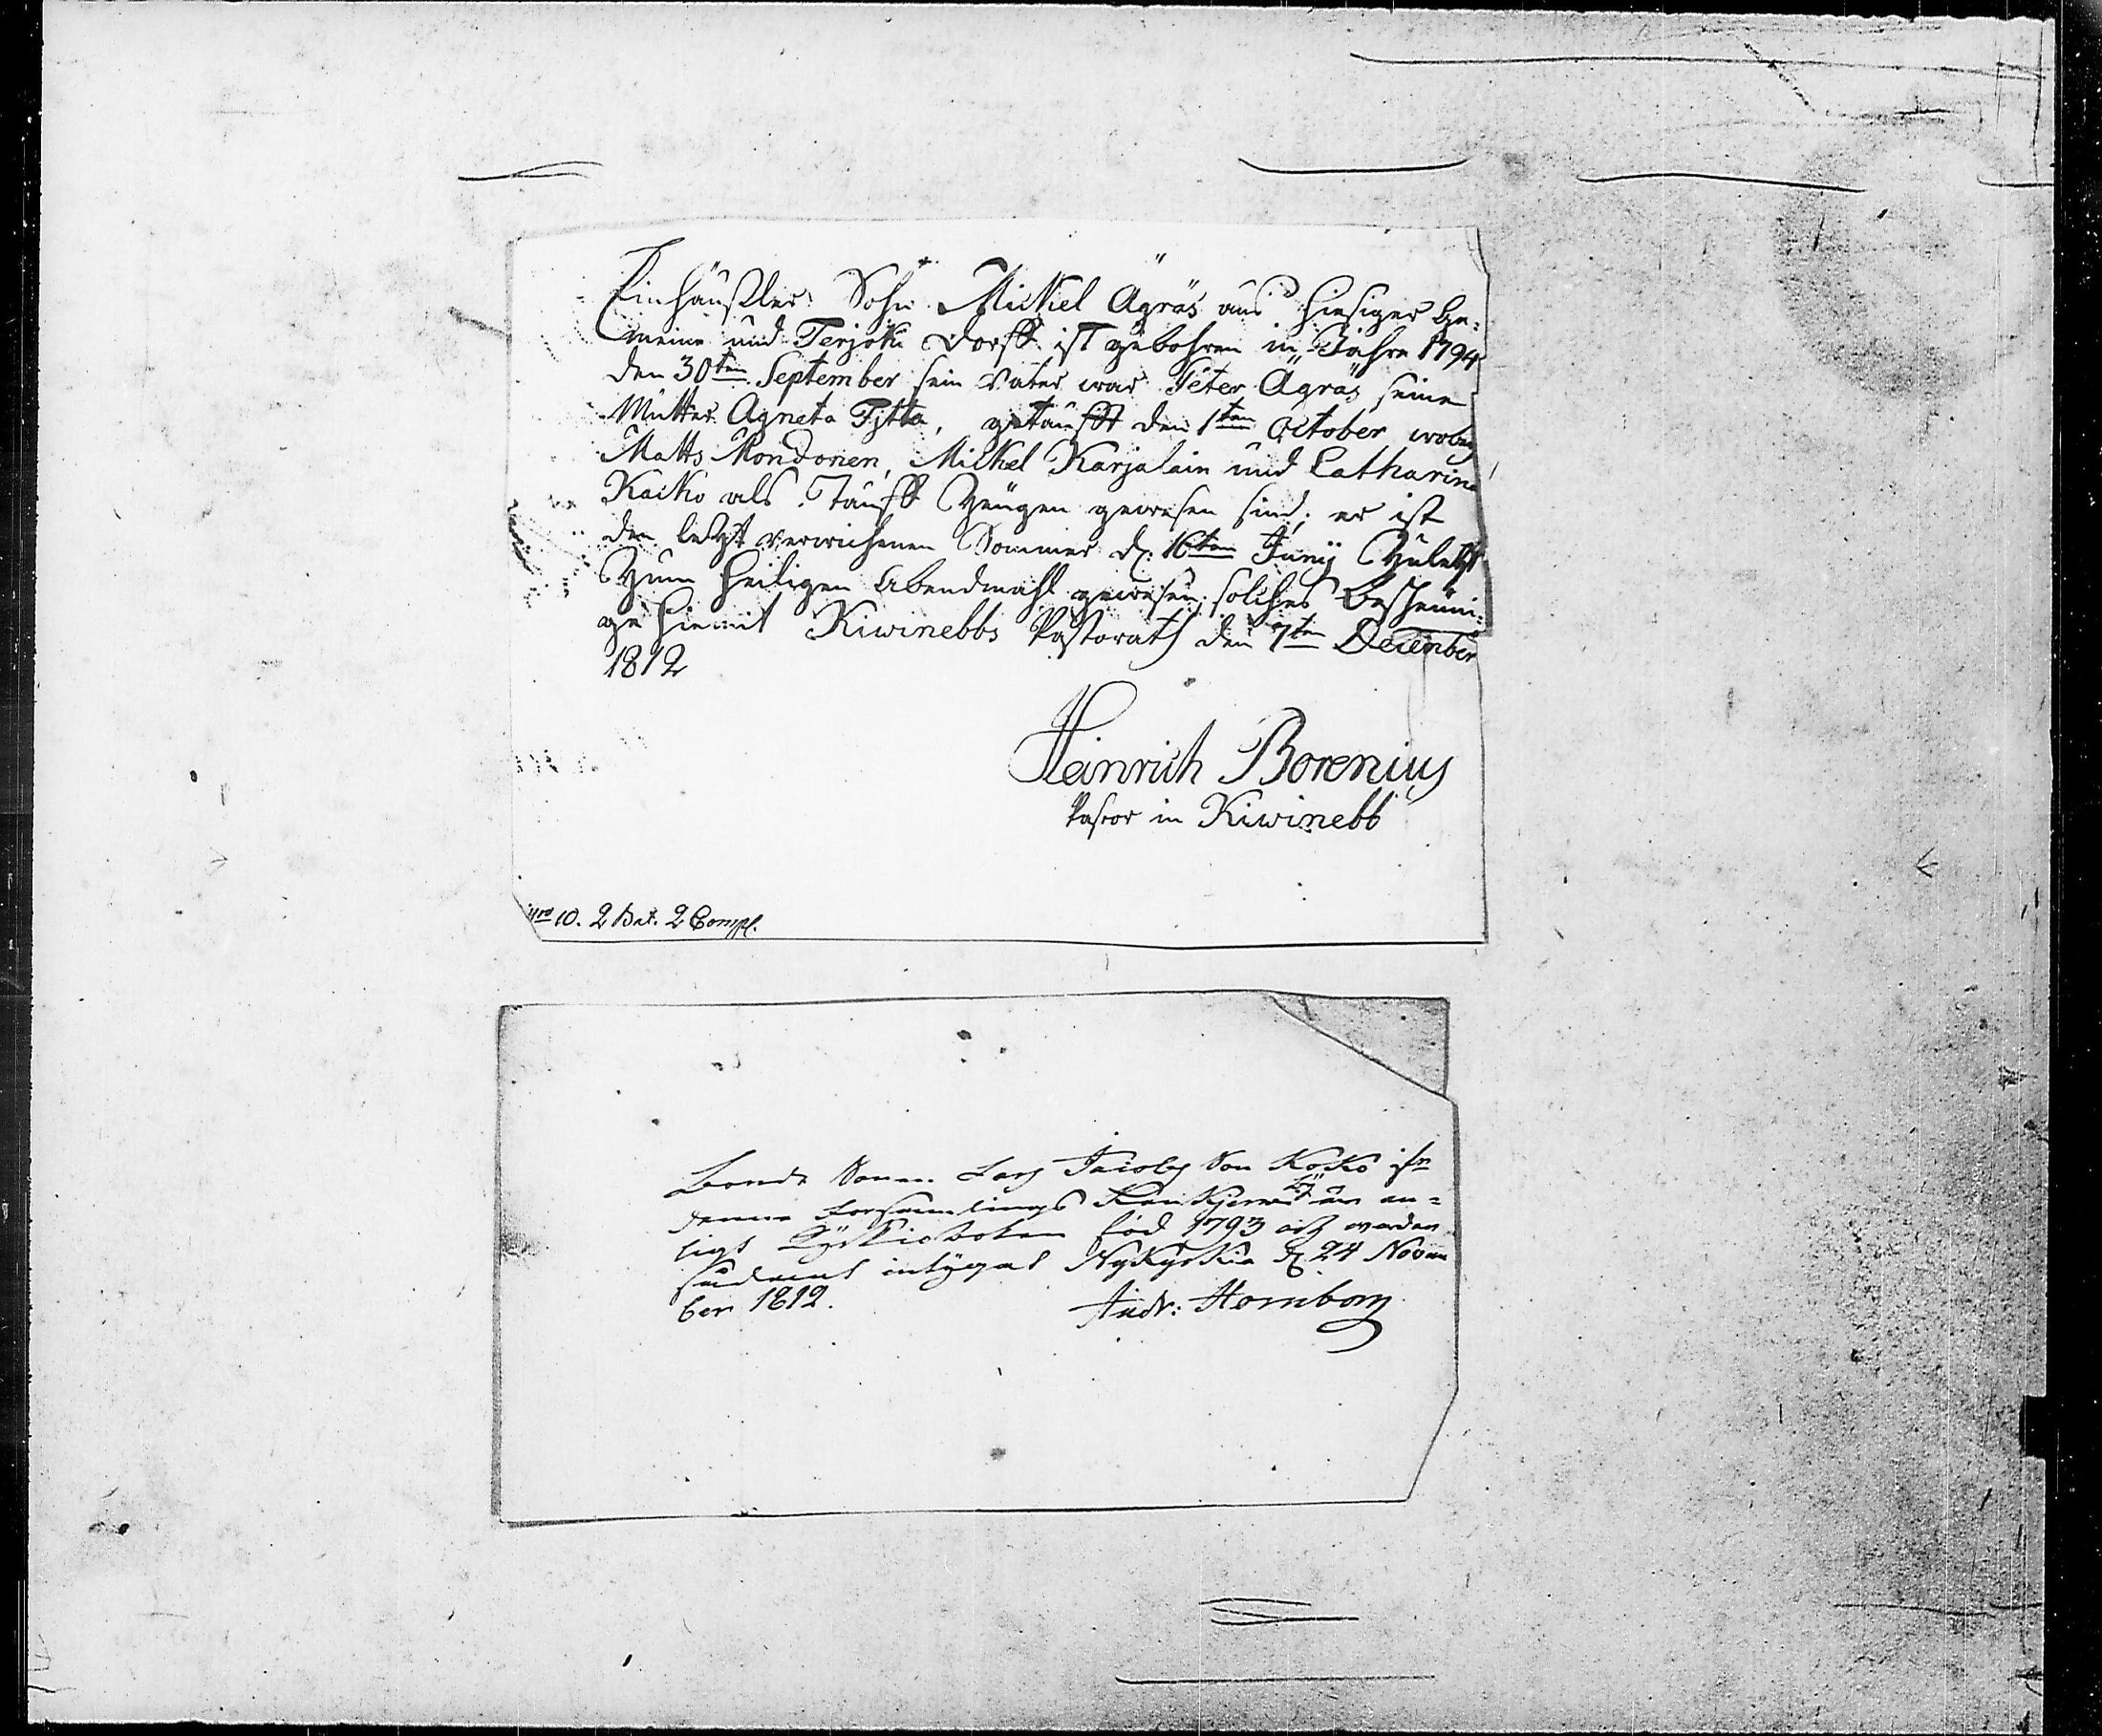 Einhäußler Sohn Mickel Ägräs aus hiesiger Ge-
meine und Terjoki Dorff ist gebohren im Jahre 1794
den 30ten September sein Vater war Peter Ägräs seine
Mutter Agneta Tytta, getaufft den 1ten October wobey
Matts Mondonen, Mickel Karjalain und Catharina
Kaiko als Tauff Zeugen gewesen sind; er ist
den letzt verwichenen Sommer d. 16ten Junij Zuletzt
Zum heiligen Abendmahl gewesen; solches bescheini-
ge hiemit Kiwinebbs Pastorath den 7ten December
1812
Heinrich Borenius
Pastor in Kiwinebb
nro 10. 2 Bat. 2 Comp.
Bonde Sonen Lars Jacobs Son Koko ifrn
denna Församlings by är en-
ligt Kyrkioboken född 1793 och warder
sådant intygat NyKyrKia d. 24 Novem
ber 1812.
Andr: Hornborg